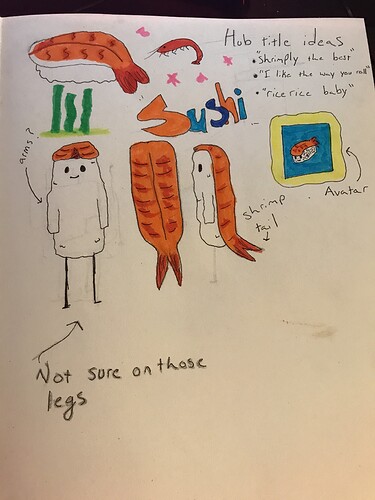 Hob title ideas
• "Shrimply the best"
• "I like the way you roll"
• "rice rice baby"
Sushi
arms?
Avatar
shrimp
tail
Not sure on those
legs